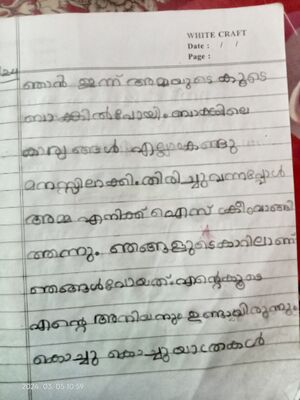 WHITE CRAFT
Date : / /
Page :
ഞാൻ ഇന്ന് അമ്മയുടെ കൂടെ
ബാങ്കിൽപോയി. ബാങ്കിലെ
കാര്യങ്ങൾ എല്ലാംകണ്ടു
മനസ്സിലാക്കി. തിരിച്ചുവന്നപ്പോൾ
അമ്മ എനിക്ക് ഐസ് ക്രീംവാങ്ങി
ത്തന്നു. ഞങ്ങളുടെകാറിലാണ്
ഞങ്ങൾപോയത്. എന്റെകൂടെ
എന്റെ അനിയനും ഉണ്ടായിരുന്നു.
കൊച്ചു കൊച്ചുയാത്രകൾ
2024.03.05 10:59